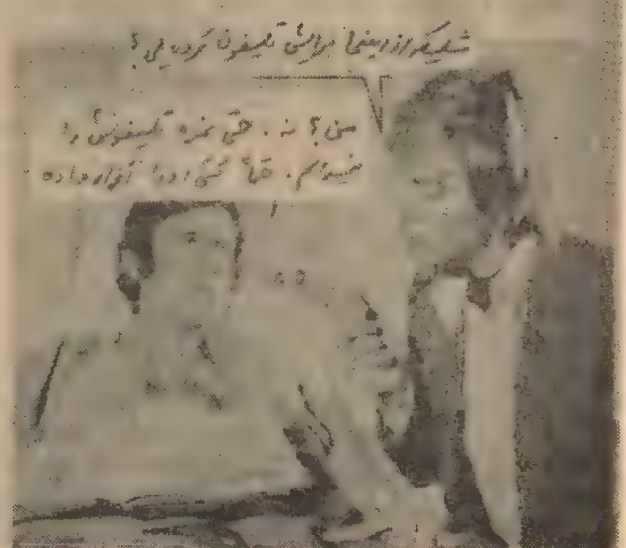 شلیکه از اینجا برایش تلیفون کرده یی؟
من؟ نه. حتی نمره تلیفونش را
نمیدانم. حتماً کسی او را آزار داده